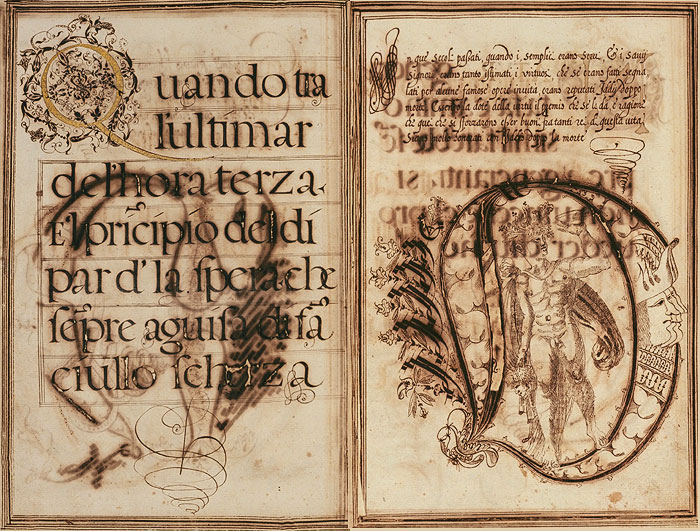 Quando tra
l'ultimar
del'hora terza
E'l prīcipio del di
par d' la ſpera che
ſēpre aguiſa di fā
ciullo ſcherza
In que secoli passati, quando i semplici erano serui, & i sauij
Signori, erano tanto istimati i virtuosi che se erano fatti segna
lati per alcune famose opere in uita, erano reputati Iddij doppo
morte. la dote della uirtù il premio che se li da è ragione
che quei che si sforzarono esser buoni fra tanti rei di questa vita,
Siano molto honorati con doppo la morte